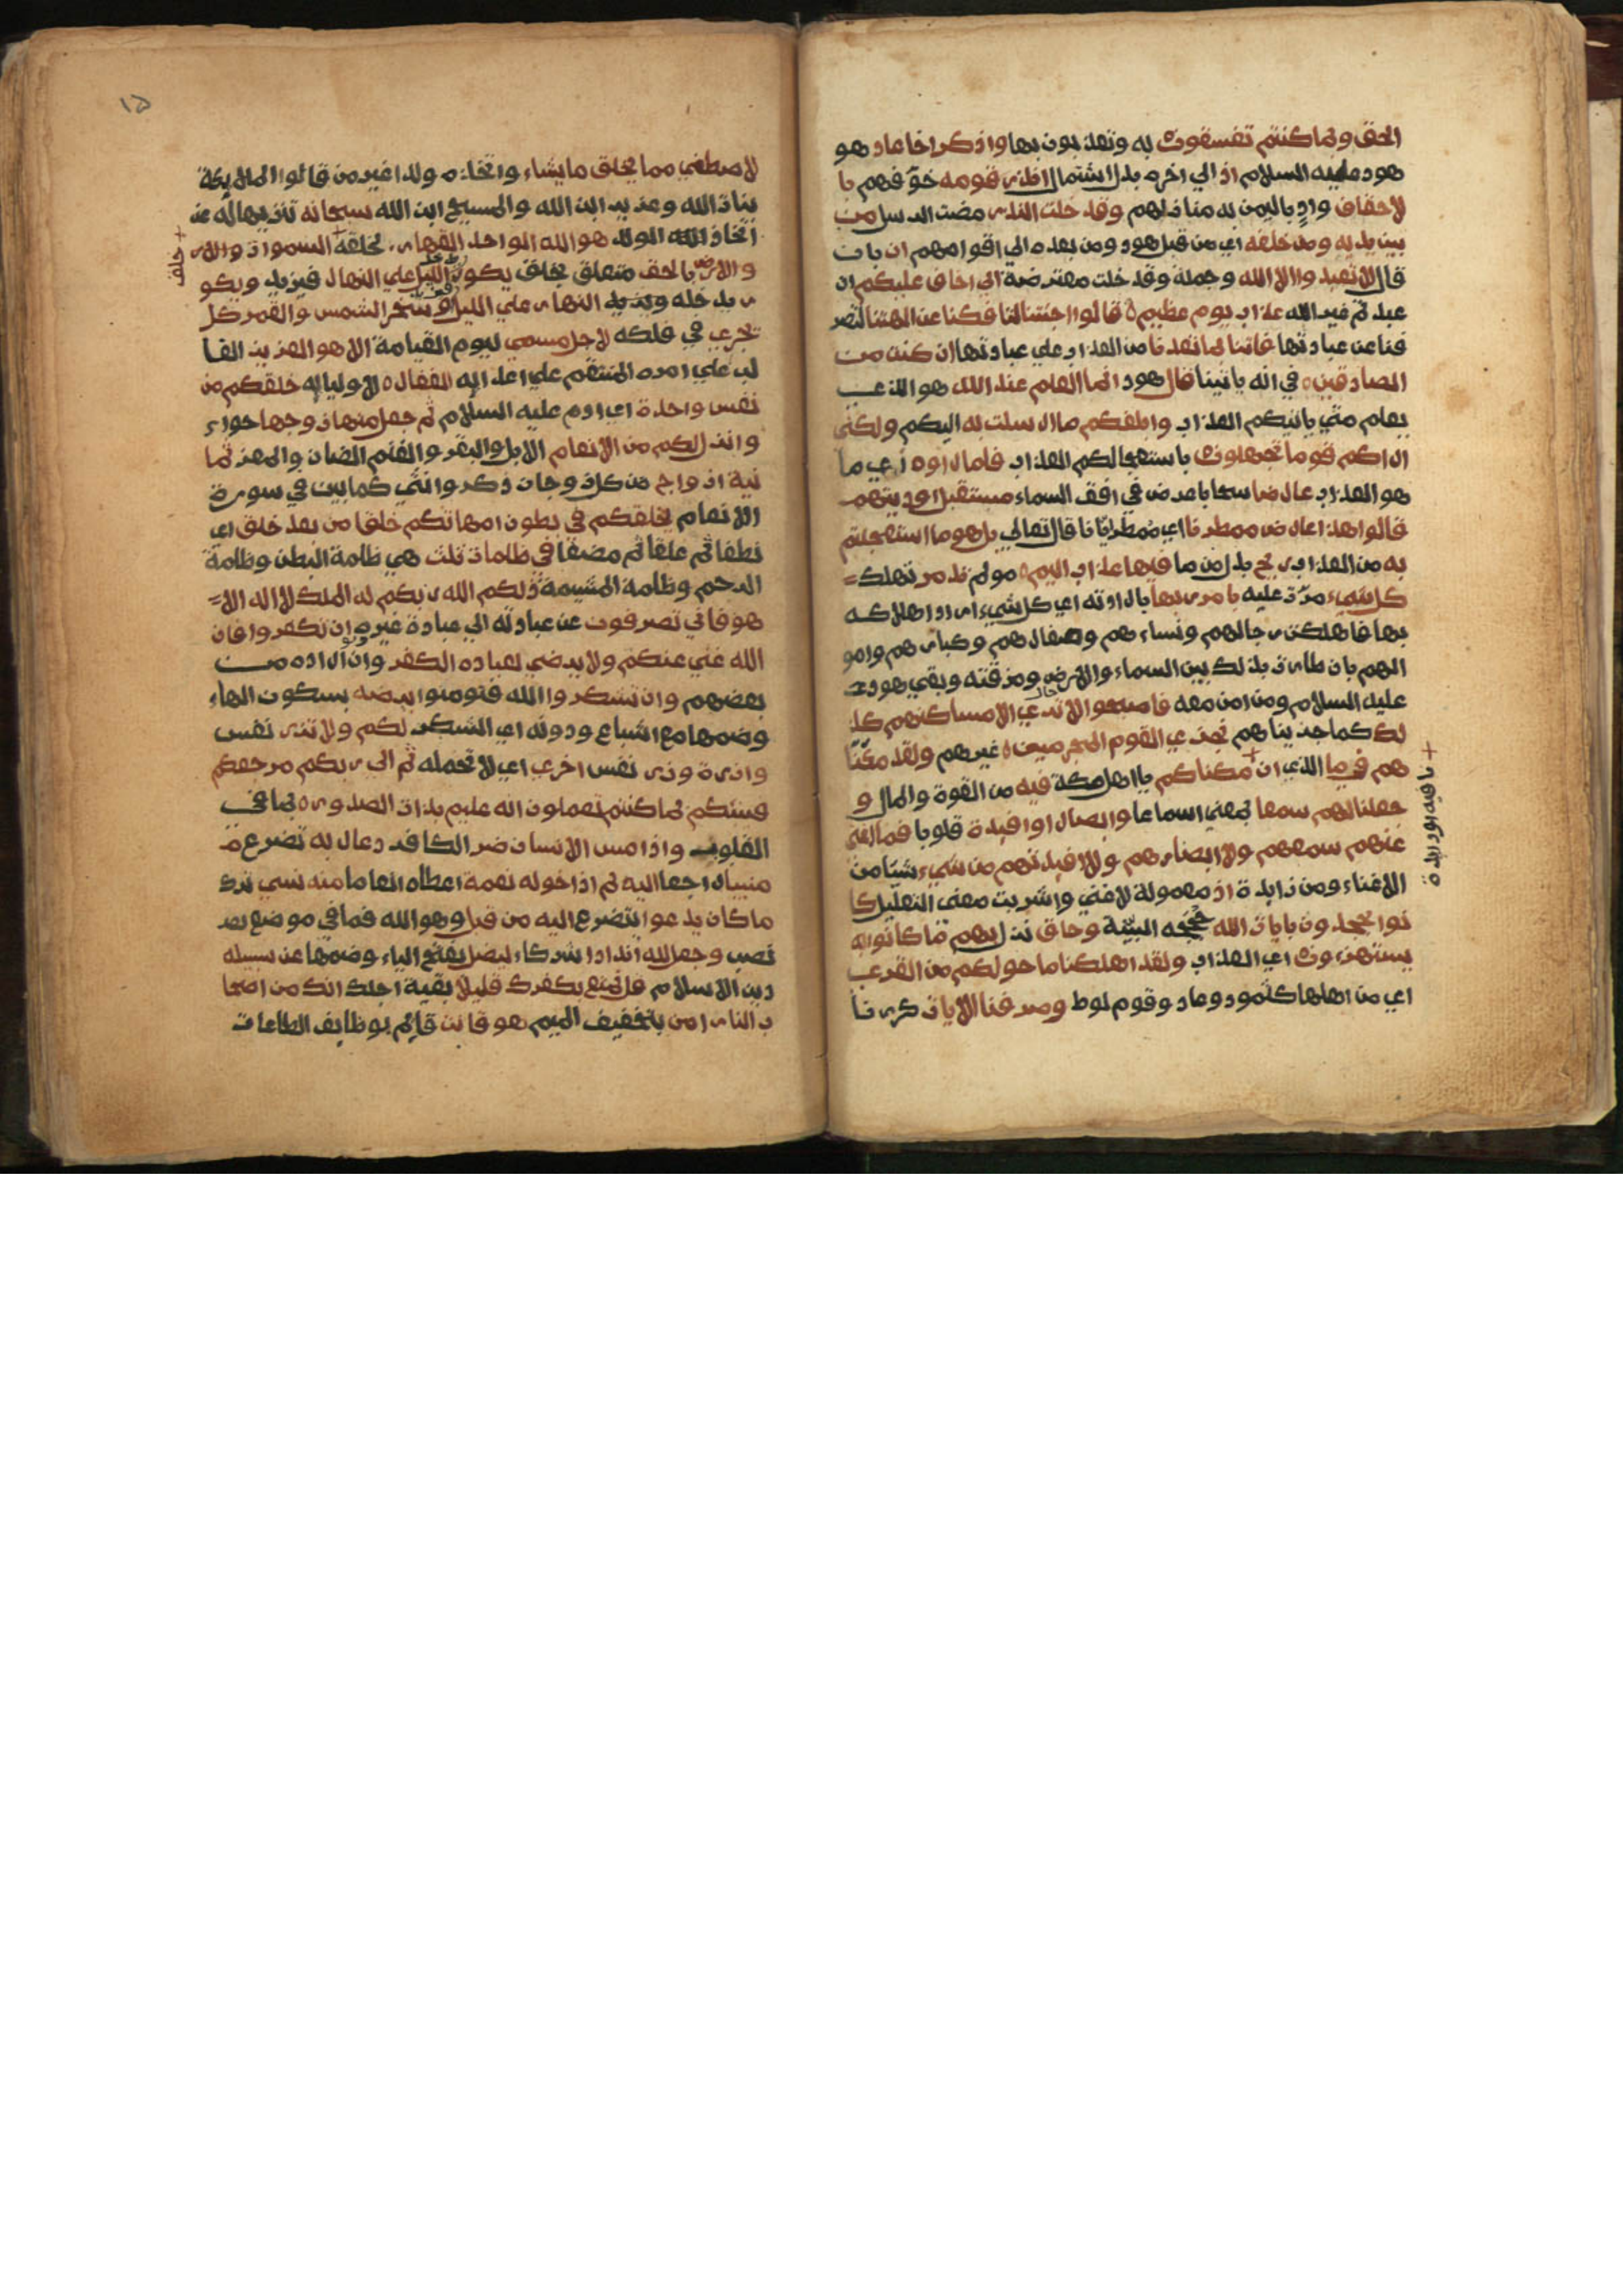 الحق وبما كنتم تفسقون به وتعذبون بها واذكر اخا عاد هو
هود عليه السلام اذ الي اخره بدل اشتمال انذر قومه خوّفهم با
لاحقاف وادٍ باليمن به منازلهم وقد خلت النذر مضت الرسل من
بين يديه ومن خلفه اي من قبل هود ومن بعده الي اقوامهم ان بان
قال لا تعبدوا الا الله وجملة وقد خلت معترضة اني اخاف عليكم ان
عبدتم غير الله عذاب يوم عظيم ه قالوا اجئتنا لتافكنا عن الهتنا لتصر
فنا عن عبادتها فاتنا بما تعدنا من العذاب علي عبادتها ان كنت من
الصادقين ه في انه ياتينا قال هود انما العلم عند الله هو الذي
يعلم متي ياتيكم العذاب وابلغكم ما ارسلت به اليكم ولكني
اراكم قوما تجهلون باستعجالكم العذاب فلما راوه اي ما
هو العذاب عارضا سحابا عرض في افق السماء مستقبل اوديتهم
قالوا هذا عارض ممطرنا اي ممطر ايانا قال تعالي بل هو ما استعجلتم
به من العذاب ريح بدل من ما فيها عذاب اليم ه مولم تدمر تهلك
كل شيء مرّت عليه بامر ربها بارادته اي كل شيء اراد اهلاكه
بها فاهلكت رجالهم ونساءهم وصغارهم وكبارهم وامو
الهم بان طارت بذلك بين السماء والارض ومزقته وبقي هود
عليه السلام ومن امن معه فاصبحوا لا تري الا مساكنهم كذ
لك كما جزيناهم نجزي القوم المجرمين ه غيرهم ولقد مكّنّا
هم فيما الذي ان مكناكم يا اهل مكة فيه من القوة والمال و
جعلنا لهم سمعا بمعني اسماعا وابصارا وافيدة قلوبا فما اغني
عنهم سمعهم ولا ابصارهم ولا افيدتهم من شيء شيا من
الاغناء ومن زايدة اذ معمولة لاغني واشربت معني التعليل كا
نوا يجحدون بايات الله حججه البيّنة وحاق نزل بهم ما كانوا به
يستهزءون اي العذاب ولقد اهلكنا ما حولكم من القري
اي من اهلها كثمود وعاد وقوم لوط وصرفنا الايات كررنا
نافيه او زايدة
١٥
لاصطفي مما يخلق ما يشاء واتخذه ولدا غير من قالوا الملايكة
بنات الله وعزير ابن الله والمسيح ابن الله سبحانه تنزيها له عن
اتخاذ الولد هو الله الواحد القهار لخلقه السموات والار
والارض بالحق متعلق بخلق يكور الليل علي النهار فيزيد ويكو
ر يدخله ويزيد النهار علي الليل وسخر الشمس والقمر كل
تجري في فلكه لاجل مسمي ليوم القيامة الا هو العزيز الغا
لب علي امره المنتقم علي اعدايه الغفار ه لاوليايه خلقكم من
نفس واحدة اي ادم عليه السلام ثم جعل منها زوجها حواء
وانزل لكم من الانعام الابل والبقر والغنم الضان والمعز ثما
نية ازواج من كل زوجان ذكر وانثي كما بين في سورة
الانعام يخلقكم في بطون امهاتكم خلقا من بعد خلق اي
نطفا ثم علقا ثم مضغا في ظلمات ثلث هي ظلمة البطن وظلمة
الرحم وظلمة المشيمة ذلكم الله ربكم له الملك لا اله الا
هو فاني تصرفون عن عبادته الي عبادة غيره ان تكفروا فان
الله غني عنكم ولا يرضي لعباده الكفر وان اراده من
بعضهم وان تشكروا الله فتومنوا يرضه بسكون الهاء
وضمها مع اشباع ودونه اي الشكر لكم ولا تزر نفس
وازرة وزر نفس اخري اي لا تحمله ثم الي ربكم مرجعكم
فينبئكم بما كنتم تعملون انه عليم بذات الصدور ه بما في
القلوب واذا مس الانسان ضر الكافر دعا ربه تضرع
منيبا راجعا اليه ثم اذا خوله نعمة اعطاه انعاما منه نسي ترك
ما كان يدعوا يتضرع اليه من قبل وهو الله فما في موضع
نصب وجعل لله اندادا شركاء ليضل بفتح الياء وضمها عن سبيله
دين الاسلام قل تمتع بكفرك قليلا بقية اجلك انك من اصحا
ب النار امن بتخفيف الميم هو قانت قايم بوظايف الطاعات
خلق